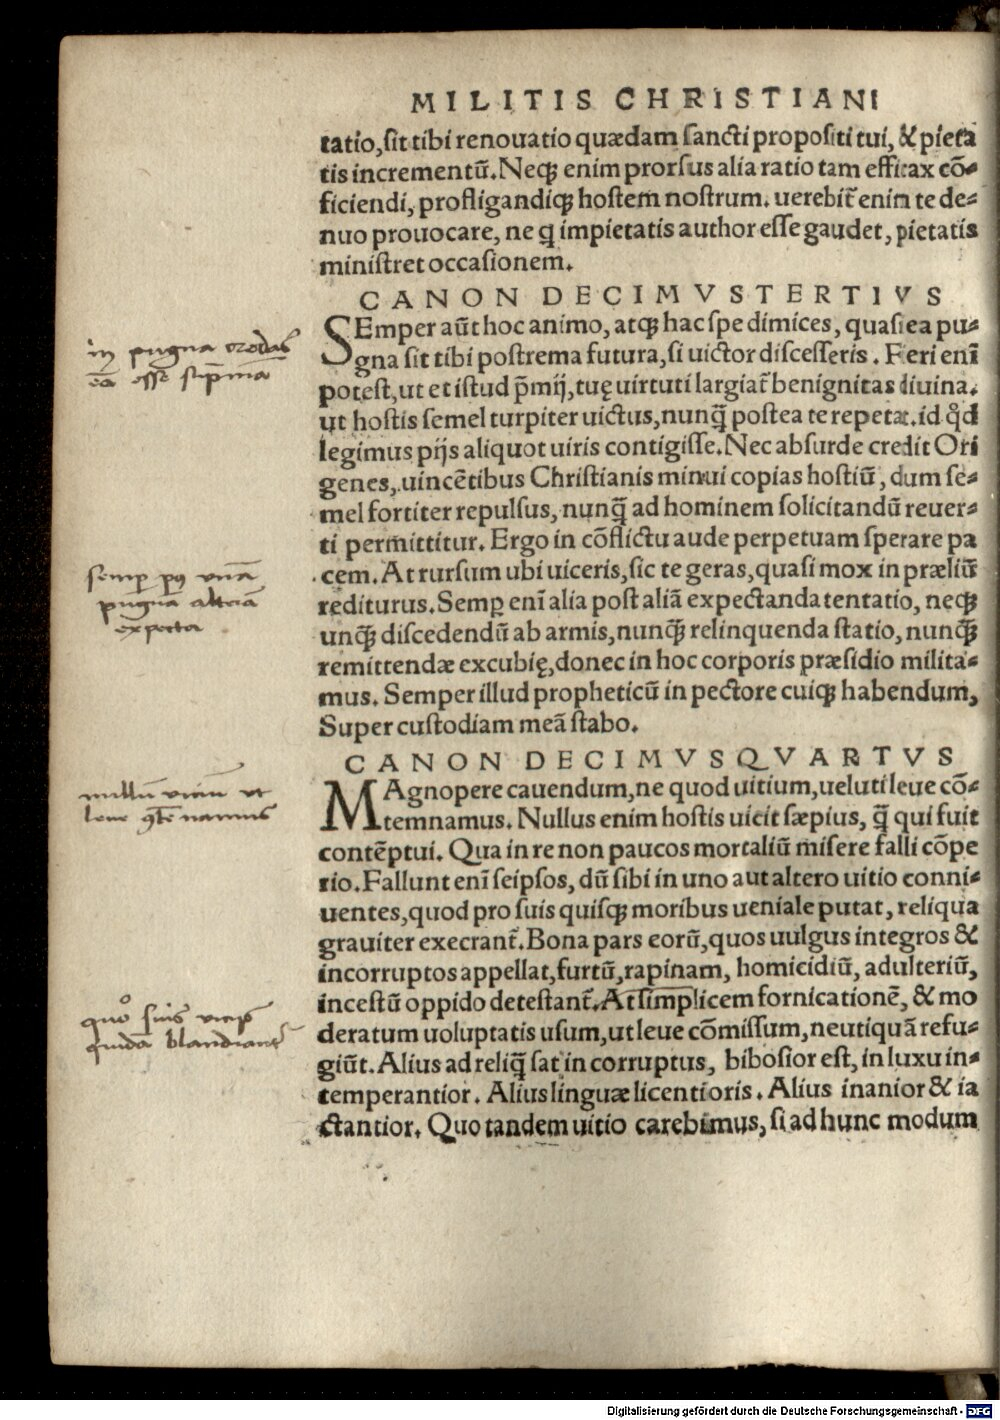 MILITIS CHRISTIANI
tatio, sit tibi renouatio quædam sancti propositi tui, & pieta
tis incrementũ. Neqꝫ enim prorsus alia ratio tam efficax cõ⸗
ficiendi, profligandiqꝫ hostem nostrum. uerebit̃ enim te de⸗
nuo prouocare, ne q impietatis author esse gaudet, pietatis
ministret occasionem.
CANON DECIMVSTERTIVS
SEmper aũt hoc animo, atqꝫ hac spe dimices, quasi ea pu⸗
gna sit tibi postrema futura, si uictor discesseris. Fieri enĩ
potest, ut et istud p̃mij, tuę uirtuti largiat̃ benignitas diuina.
ut hostis semel turpiter uictus, nunq̃ postea te repetat. id qd̓
legimus pijs aliquot uiris contigisse. Nec absurde credit Ori
genes, uincẽtibus Christianis minui copias hostiũ, dum se⸗
mel fortiter repulsus, nunq̃ ad hominem solicitandũ reuer⸗
ti permittitur. Ergo in cõflictu aude perpetuam sperare pa
cem. At rursum ubi uiceris, sic te geras, quasi mox in præliũ
rediturus. Semꝑ enĩ alia post aliã expectanda tentatio, neqꝫ
unq̃ꝫ discedendũ ab armis, nunq̃ꝫ relinquenda statio, nunq̃ꝫ
remittendæ excubię, donec in hoc corporis præsidio milita⸗
mus. Semper illud propheticũ in pectore cuiqꝫ habendum,
Super custodiam meã stabo.
CANON DECIMVSQVARTVS
MAgnopere cauendum, ne quod uitium, ueluti leue cõ⸗
temnamus. Nullus enim hostis uicit sæpius, q̃ qui fuit
contẽptui. Qua in re non paucos mortaliũ misere falli cõpe
rio. Fallunt enĩ seipsos, dũ sibi in uno aut altero uitio conni⸗
uentes, quod pro suis quisqꝫ moribus ueniale putat, reliqua
grauiter execrant̃. Bona pars eorũ, quos uulgus integros &
incorruptos appellat, furtũ, rapinam, homicidiũ, adulteriũ,
incestũ oppido detestant̃. At simplicem fornicationẽ, & mo
deratum uoluptatis usum, ut leue cõmissum, neutiquã refu⸗
giũt. Alius ad reliq̃ sat in corruptus, bibosior est, in luxu in⸗
temperantior. Alius linguæ licentioris. Alius inanior & ia
ctantior. Quo tandem uitio carebimus, si ad hunc modum
in pugna credas
eã esse sup̃mã
semꝑ pꝰ vnã
pugnã alterã
expecta
nullũ viciũ vt
leue
quo͂ suis vicijs
quidã blandiant̃
Digitalisierung gefördert durch die Deutsche Forschungsgemeinschaft - DFG